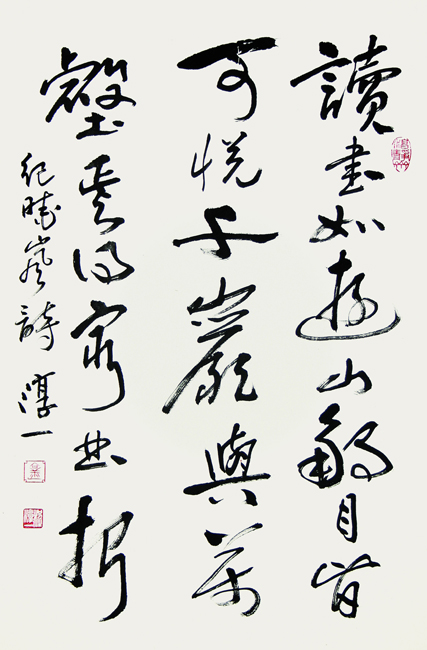 讀書如遊山觸目皆
可悅千巖與萬
壑焉得窮曲折
紀曉嵐詩 淳一